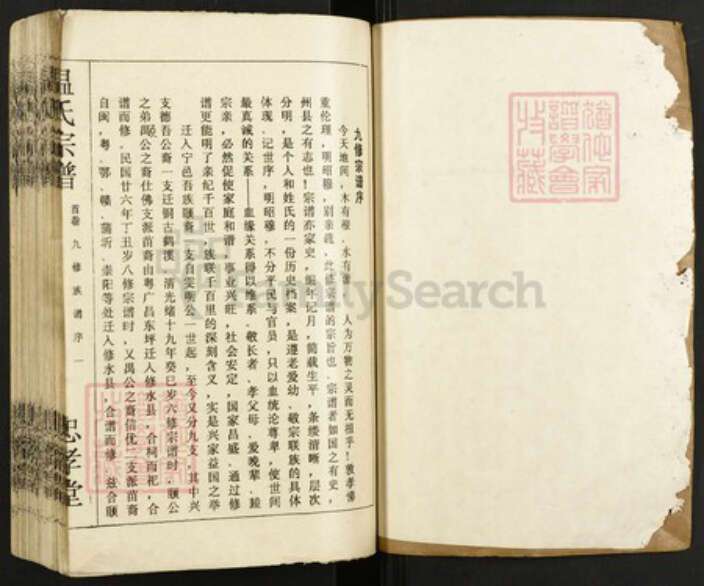 九修宗谱序
今天地间，木有根、水有源，人为万物之灵而无祖乎！敦孝悌
重伦理，明昭穆，别亲疏，此修宗谱的宗旨也。宗谱者如国之有史，
州县之有志也！宗谱亦家史，编年记月，简载生平，条缕清晰，层次
分明，是个人和姓氏的一份历史档案，是遵老爱幼、敬宗联族的具体
体现。记世序，明昭穆，不分平民与官员，只以血统论尊卑，使世间
最真诚的关系——血缘关系得以维系。敬长者、孝父母、爱晚辈、睦
宗亲，必然促使家庭和谐，事业兴旺，社会安定，国家昌盛。通过修
谱更能明了亲纪千百世，族联千百里的深刻含义，实是兴家益国之举
迁入宁邑吾族颐裔，支自雯明公一世起，至今又分九支，其中兴
支德吾公裔一支迁铜古鹤溪。清光绪十九年癸巳岁六修宗谱时，颐公
之弟禹公之裔仕佛支派苗裔由粤广昌东坪迁入修水县，合祠而祀，合
谱而修。民国廿六年丁丑岁八修宗谱时，又禹公之裔信优二支派苗裔
自闽，粤、鄂、赣、蒲圻、崇阳等处迁入修水县，合谱而修。兹合颐
温氏宗谱
首卷 九修族谱序 一
忠孝堂
FamilySearch